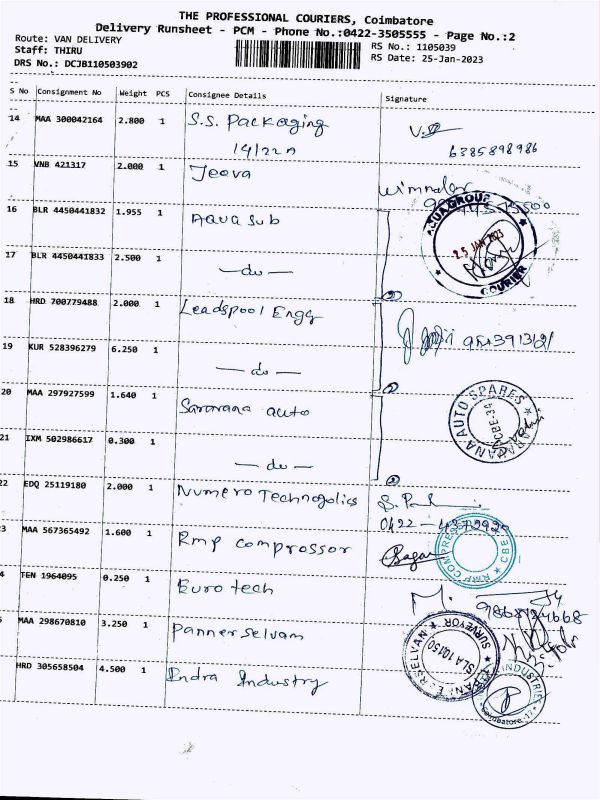 THE PROFESSIONAL COURIERS, Coimbatore
Delivery Runsheet - PCM - Phone No.:0422-3505555 - Page No.:2
Route: VAN DELIVERY
RS No.: 1105039
Staff: THIRU
RS Date: 25-Jan-2023
DRS No.: DCJB110503902
S No Consignment No Weight PCS Consignee Details Signature
14 MAA 300042164 2.800 1 S.S. Packaging
6385898986
15 VNB 421317 2.000 1 Jeeva
16 BLR 4450441832 1.955 1 Aqua Sub
AQUAGROUP
25 JAN 2023
COURIER
17 BLR 4450441833 2.500 1 — do —
18 HRD 700779488 2.000 1 Leadspool Engg
19 KUR 528396279 6.250 1 — do —
20 MAA 297927599 1.640 1 Saravana auto
SARAVANA AUTO SPARES
CBE-34
21 IXM 502986617 0.300 1 — do —
22 EDQ 25119180 2.000 1 Numero Technogolics
3 MAA 567365492 1.600 1 Rmp comprossor
Sagar
RMP COMPRESSOR
CBE
4 TEN 1964095 0.250 1 Euro tech
M.
MAA 298670810 3.250 1 Panner selvam
SURVEYOR
SLA 10150
HRD 305658504 4.500 1 Indra Industry
INDUSTRIES
Coimbatore-17